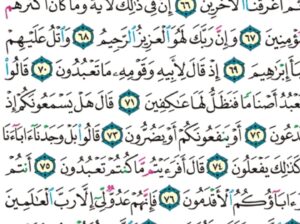 ثُمَّ أَغْرَقْنَا ٱلْأَخَرِينَ ٦٦ إِنَّ فِى ذَٰلِكَ لَأَيَةً وَمَا كَانَ أَكْثَرُهُم
ؤْمِنِينَ ٦٧ وَإِنَّ رَبَّكَ لَهُوَ ٱلْعَزِيزُ ٱلرَّحِيمُ ٦٨ وَٱتْلُ عَلَيْهِمْ
بَأَ إِبْرَٰهِيمَ ٦٩ إِذْ قَالَ لِأَبِيهِ وَقَوْمِهِۦ مَا تَعْبُدُونَ ٧٠ قَالُوا۟
عْبُدُ أَصْنَامًا فَنَظَلُّ لَهَا عَٰكِفِينَ ٧١ قَالَ هَلْ يَسْمَعُونَكُمْ إِذْ
دْعُونَ ٧٢ أَوْ يَنفَعُونَكُمْ أَوْ يَضُرُّونَ ٧٣ قَالُوا۟ بَلْ وَجَدْنَآ ءَابَآءَنَا
كَذَٰلِكَ يَفْعَلُونَ ٧٤ قَالَ أَفَرَءَيْتُم مَّا كُنتُمْ تَعْبُدُونَ ٧٥ أَنتُمْ
ءَابَآؤُكُمُ ٱلْأَقْدَمُونَ ٧٦ فَإِنَّهُمْ عَدُوٌّ لِّىٓ إِلَّا رَبَّ ٱلْعَٰلَمِينَ